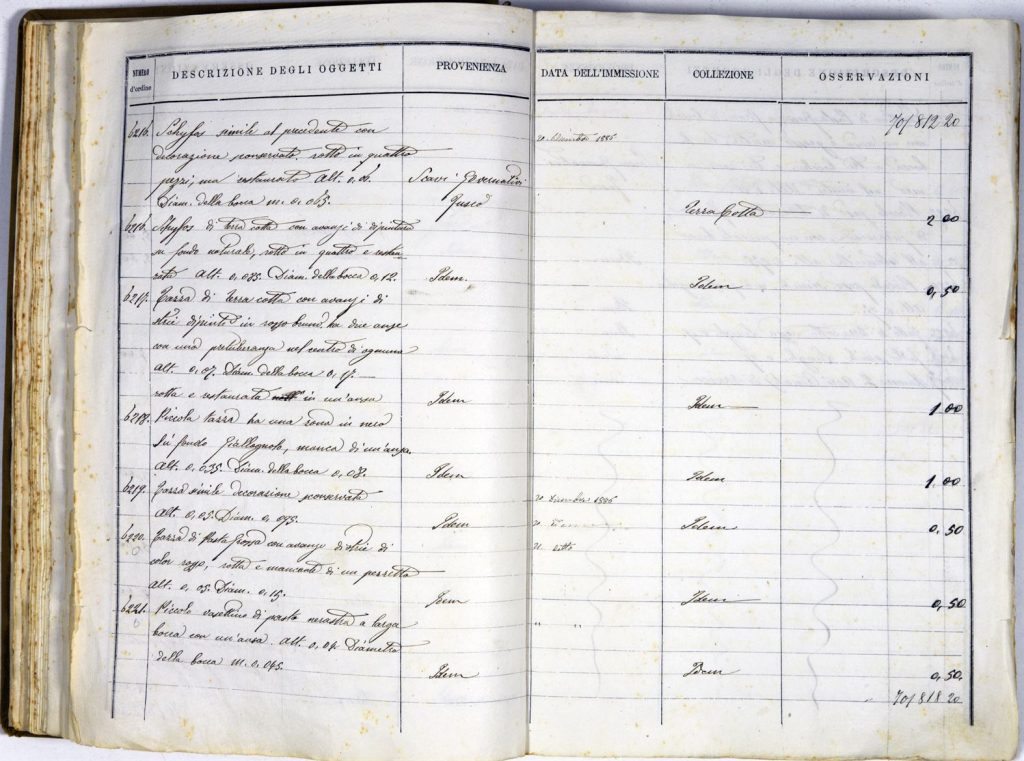 NUMERO d'ordine DESCRIZIONE DEGLI OGGETTI PROVENIENZA DATA DELL'IMMISSIONE COLLEZIONE OSSERVAZIONI
70/812 20
Schyfos simile al precedente con 20 1886
decorazione rotto in quattro
pezzi, ma restaurato Alt. 0,06. Scavi Governativi
Diam. della bocca m. 0,065. Terra Cotta 2 00
6216. Skyfos di terra cotta con avanzi di dipinture
su fondo naturale, rotto in quattro e restau
rato Alt. 0,085. Diam. della bocca 0,12. Idem Idem 0,50
6217. Tazza di terra cotta con avanzi di
strie dipinte in rosso bruno, ha due anse
con una nel centro di ognuna
Alt. 0,07. Diam. della bocca 0,17.
rotta e restaurata in un'ansa Idem Idem 1 00
6218. Piccola tazza ha una zona in nero
su fondo giallognolo, manca di un'ansa.
Alt. 0,035. Diam. della bocca 0,08. Idem Idem 1 00
6219. Tazza simile decorazione 20 1886
Alt. 0,05. Diam. 0,095. Idem Idem 0,50
6220. Tazza di pasta grossa con avanzi di strie di
color rosso, rotta e mancante di un pezzetto
Alt. 0,05. Diam. 0,15. Idem Idem 0,50
6221. Piccolo vasettino di pasta nerastra a larga
bocca con un'ansa. Alt. 0,04 Diametro " "
della bocca m. 0,045. Idem Idem 0,50.
70/818 20